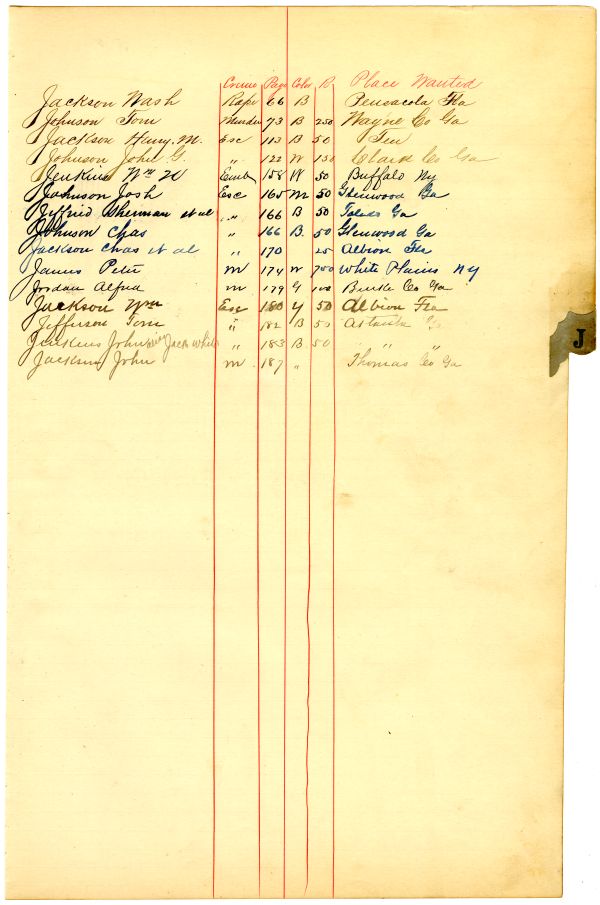 Crime Page Color R Place Wanted
Jackson Nash Rape 66 B Pensacola Fla
Johnson Tom Murder 73 B 250 Wayne Co Ga
Jackson Hany. M. Esc 113 B 50 Ten
Johnson John G. " 122 W 150 Clark Co Ga
Jenkins Wm H Emb 158 W 50 Buffalo Ny
Johnson Josh Esc 165 M 50 Glenwood Ga
Sherman et al " 166 B 50 Toledo Ga
Johnson Chas " 166 B. 50 Glenwood Ga
Jackson Chas et al " 170 25 Albion Fla
James Peter M 174 W 700 White Plains NY
Jordan Alfred M 179 G 100 Burke Co Ga
Jackson Wm Esc 180 Y 50 Albion Fla
Jefferson Tom " 182 B 50 Atlanta Ga
Jenkins John Jack White " 183 B 50 " "
Jackson John M 187 " Thomas Co Ga
J